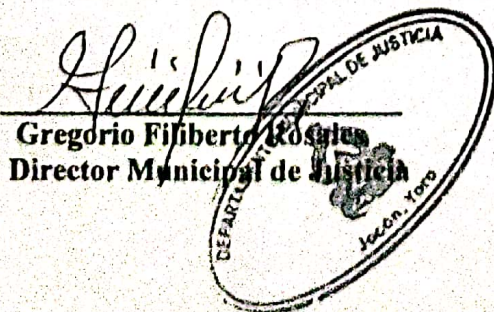 Gregorio Filiberto Rosales
Director Municipal de Justicia
DEPARTAMENTO MUNICIPAL DE JUSTICIA
Jocón, Yoro